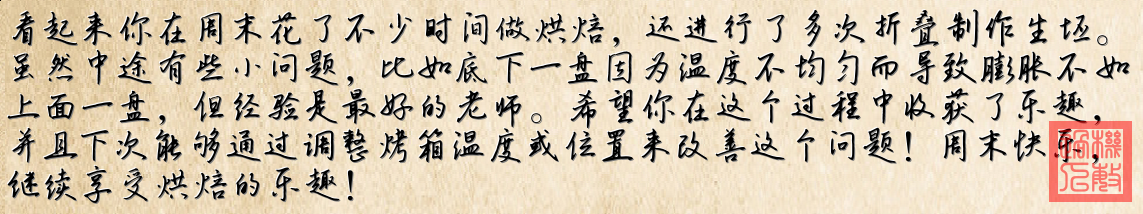 看起来你在周末花了不少时间做烘焙，还进行了多次折叠制作生坯。
虽然中途有些小问题，比如底下一盘因为温度不均匀而导致膨胀不如
上面一盘，但经验是最好的老师。希望你在这个过程中收获了乐趣，
并且下次能够通过调整烤箱温度或位置来改善这个问题！周末快乐，
继续享受烘焙的乐趣！